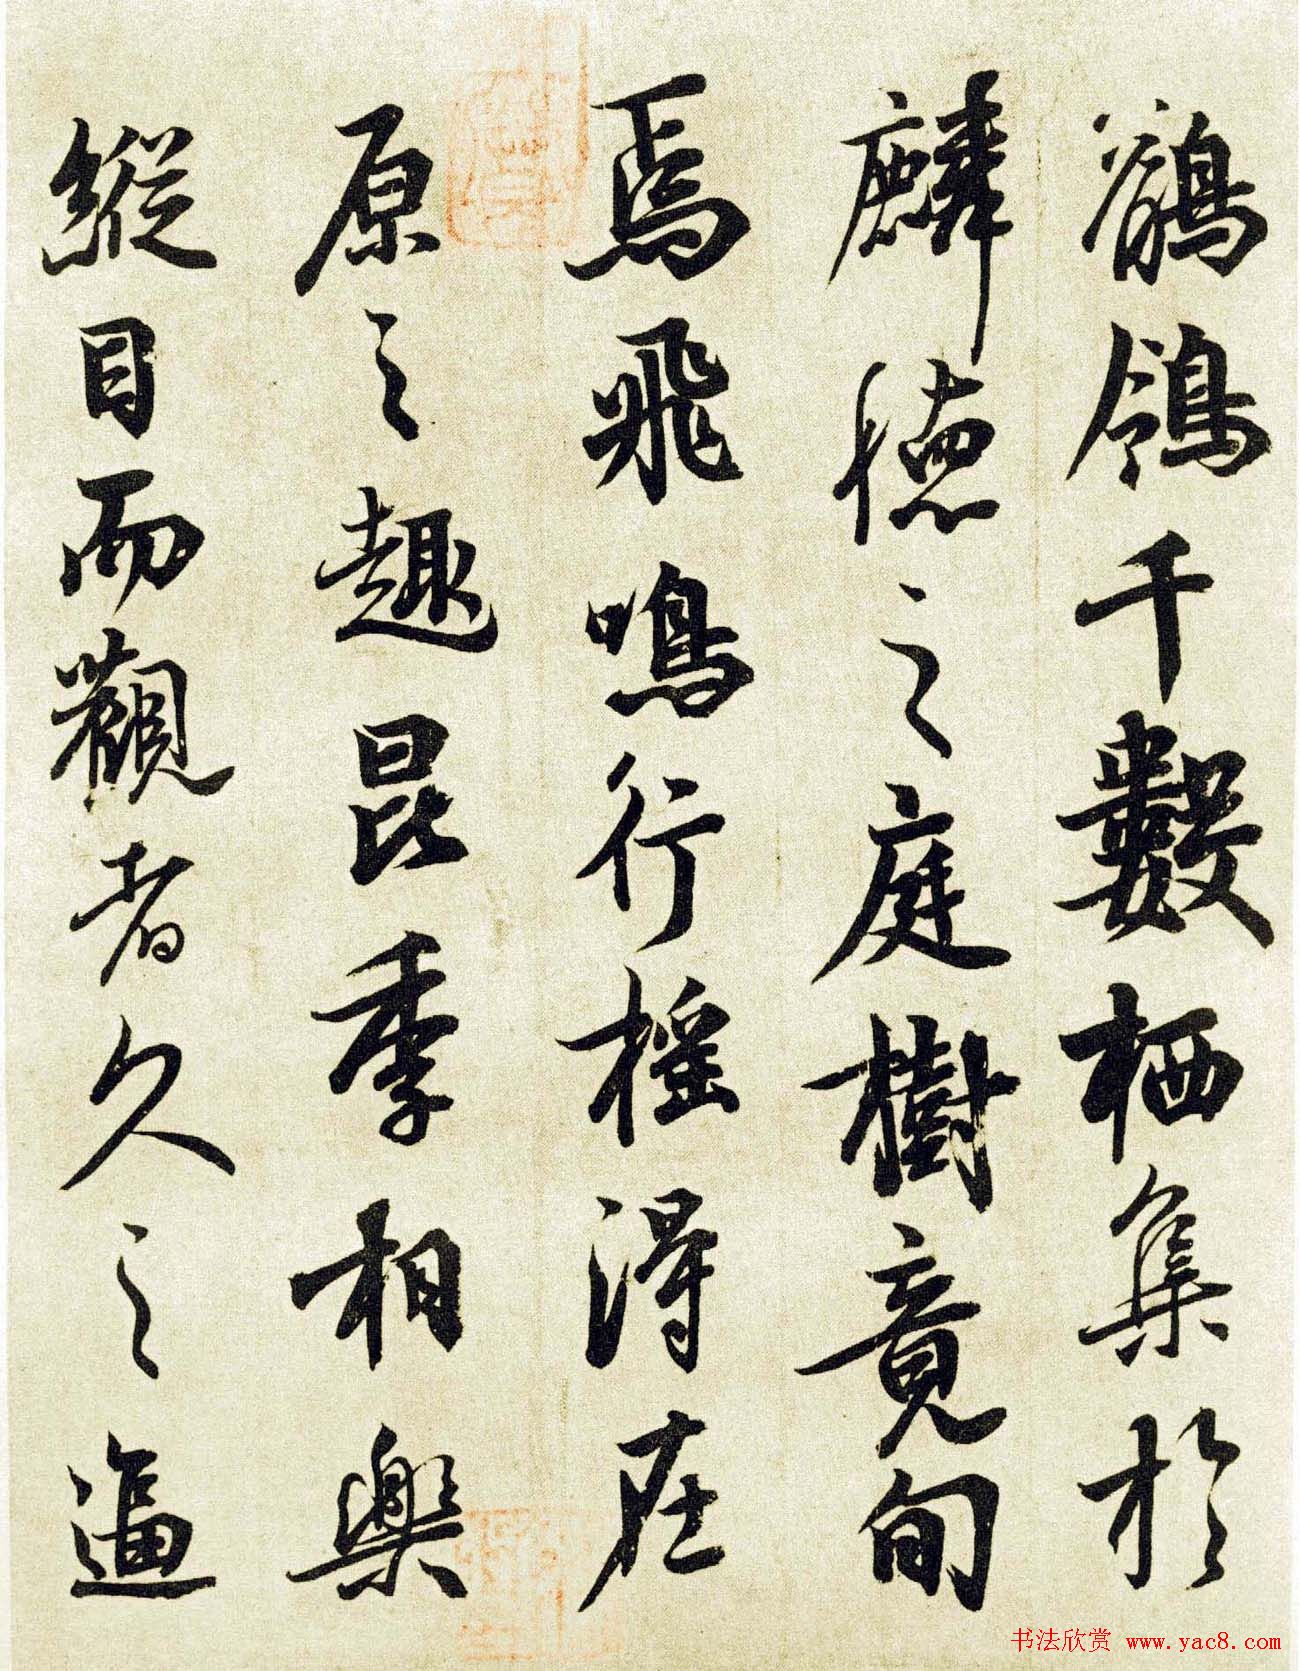 鶺鴒千數栖集於
麟德之庭樹竟旬
焉飛鳴行搖得在
原之趣昆季相樂
縱目而觀者久之逼
书法欣赏 www.yac8.com